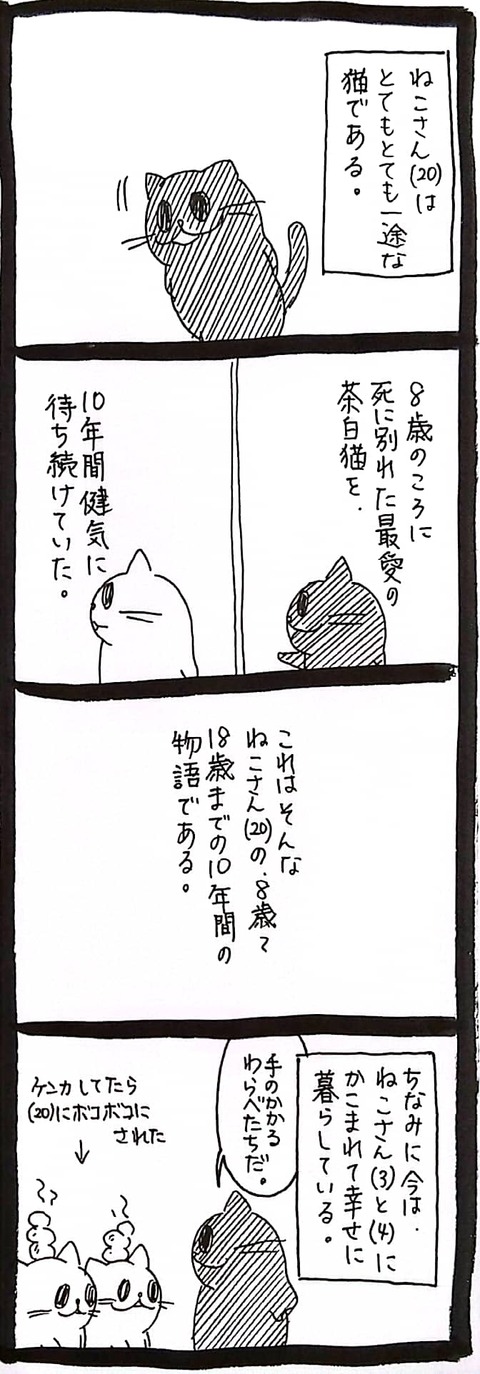 ねこさん(20)は
とてもとても一途な
猫である。
8歳のころに
死に別れた最愛の
茶白猫を、
10年間健気に
待ち続けていた。
これはそんな
ねこさん(20)の、8歳〜
18歳までの10年間の
物語である。
ちなみに今は、
ねこさん(3)と(4)に
かこまれて幸せに
暮らしている。
手のかかる
わらべたちだ。
ケンカしてたら
(20)にボコボコに
された
↓